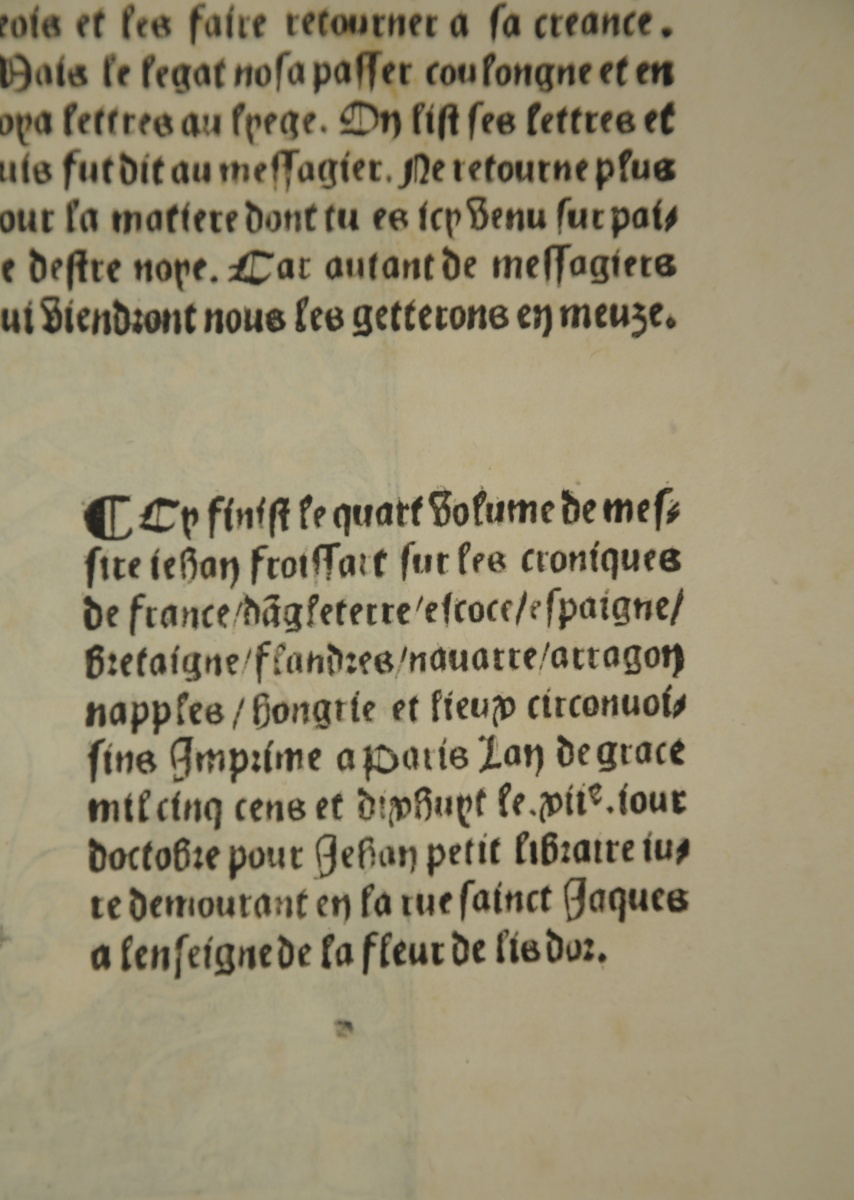 eois et les faire retourner a sa creance.
Mais le legat nosa passer coulongne et en
oya lettres au lyege. On list ses lettres et
uis fut dit au messagier. Ne retourne plus
our la matiere dont tu es icy venu sur pai⸗
e destre noye. Car autant de messagiers
ui viendront nous les getterons en meuze.
¶ Cy finist le quart volume de mes⸗
sire iehan froissart sur les croniques
de france/dãgleterre/escoce/espaigne/
bretaigne/flandres/nauarre/arragon
napples/hongrie et lieux circonuoi⸗
sins Imprime a Paris Lan de grace
mil cinq cens et dixhuyt le.xiie.iour
doctobre pour Jehan petit libraire iu⸗
re demourant en la rue sainct Jaques
a lenseigne de la fleur de lis dor.